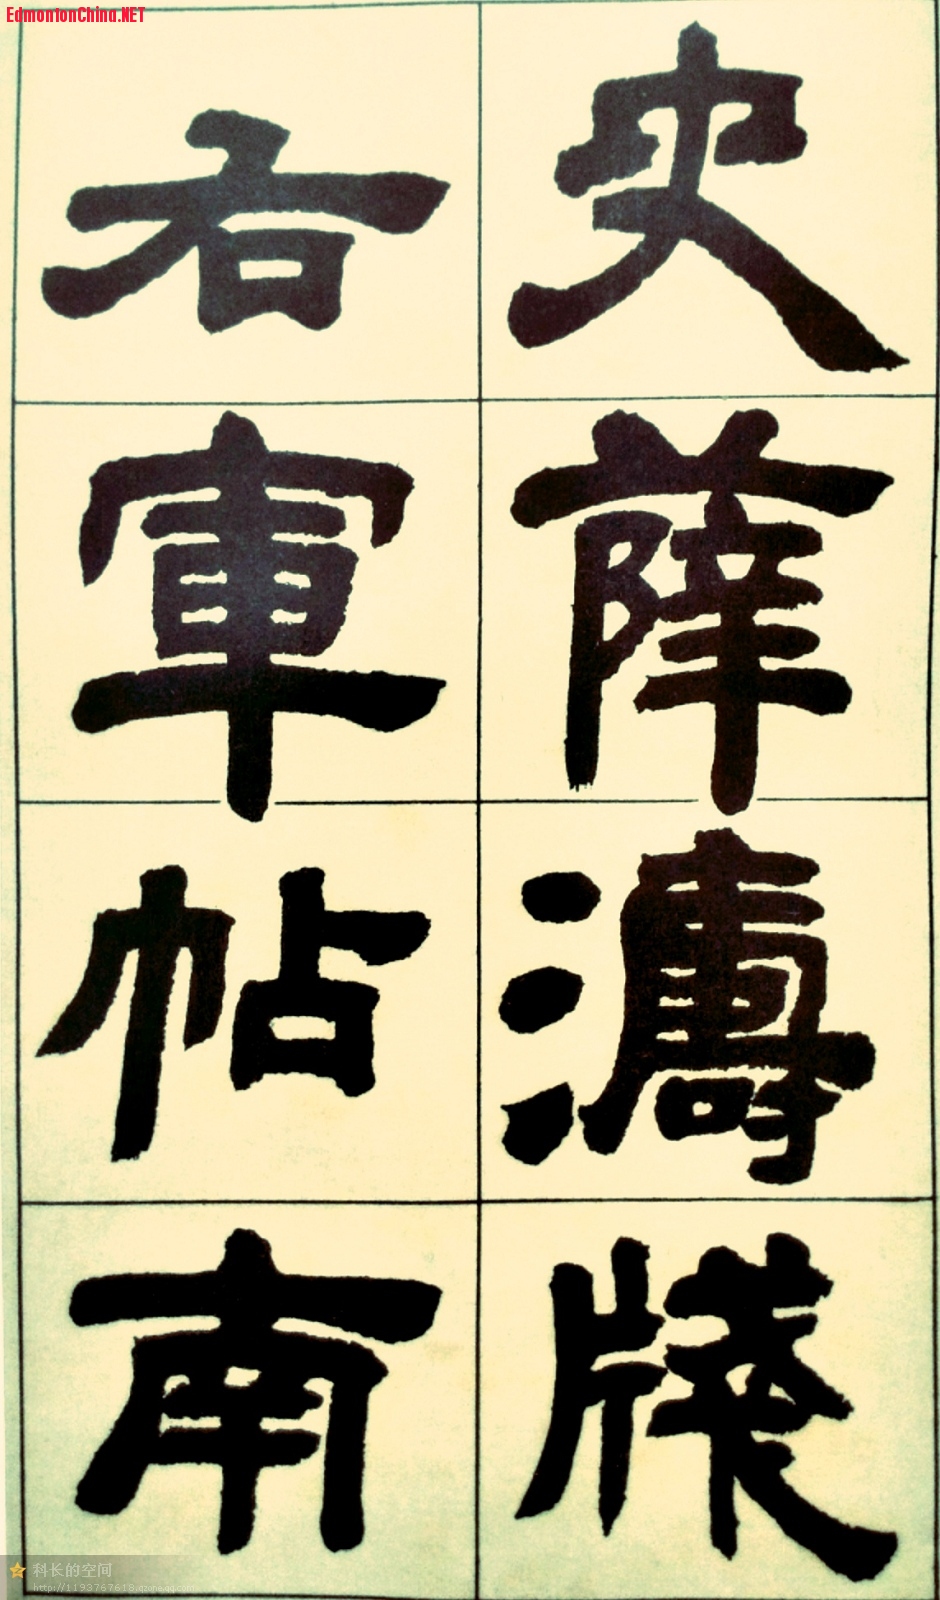 EdmontonChina.NET
史薛濤牋
右軍帖南
科长的空间
http://1193767618.qzone.qq.com